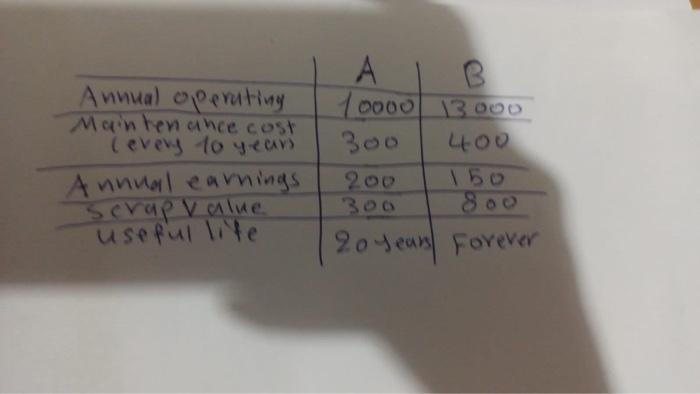 A B
Annual operating 10000 13000
Maintenance cost
(every 10 year) 300 400
Annual earnings 200 150
Scrap value 300 800
useful life 20 years Forever